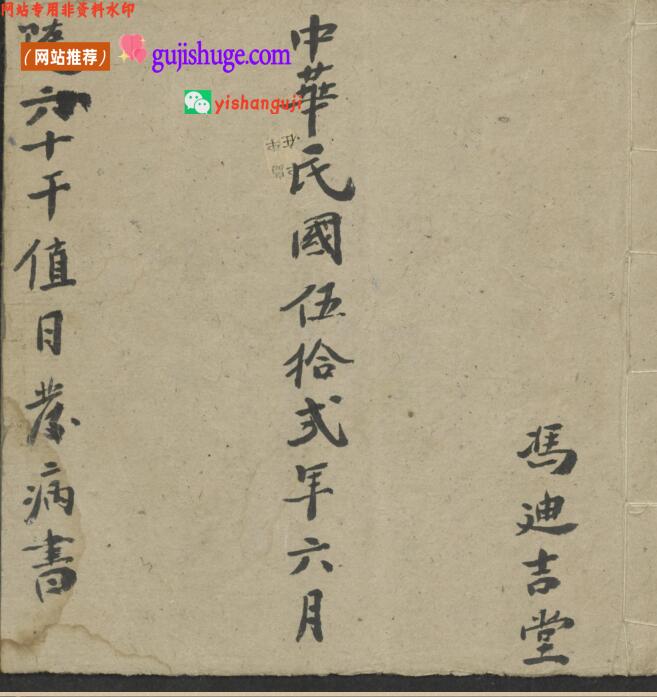 网站专用非资料水印
（网站推荐）
gujishuge.com
yishanguji
馮迪吉堂
中華民國伍拾弍年六月
六十干值日發病書